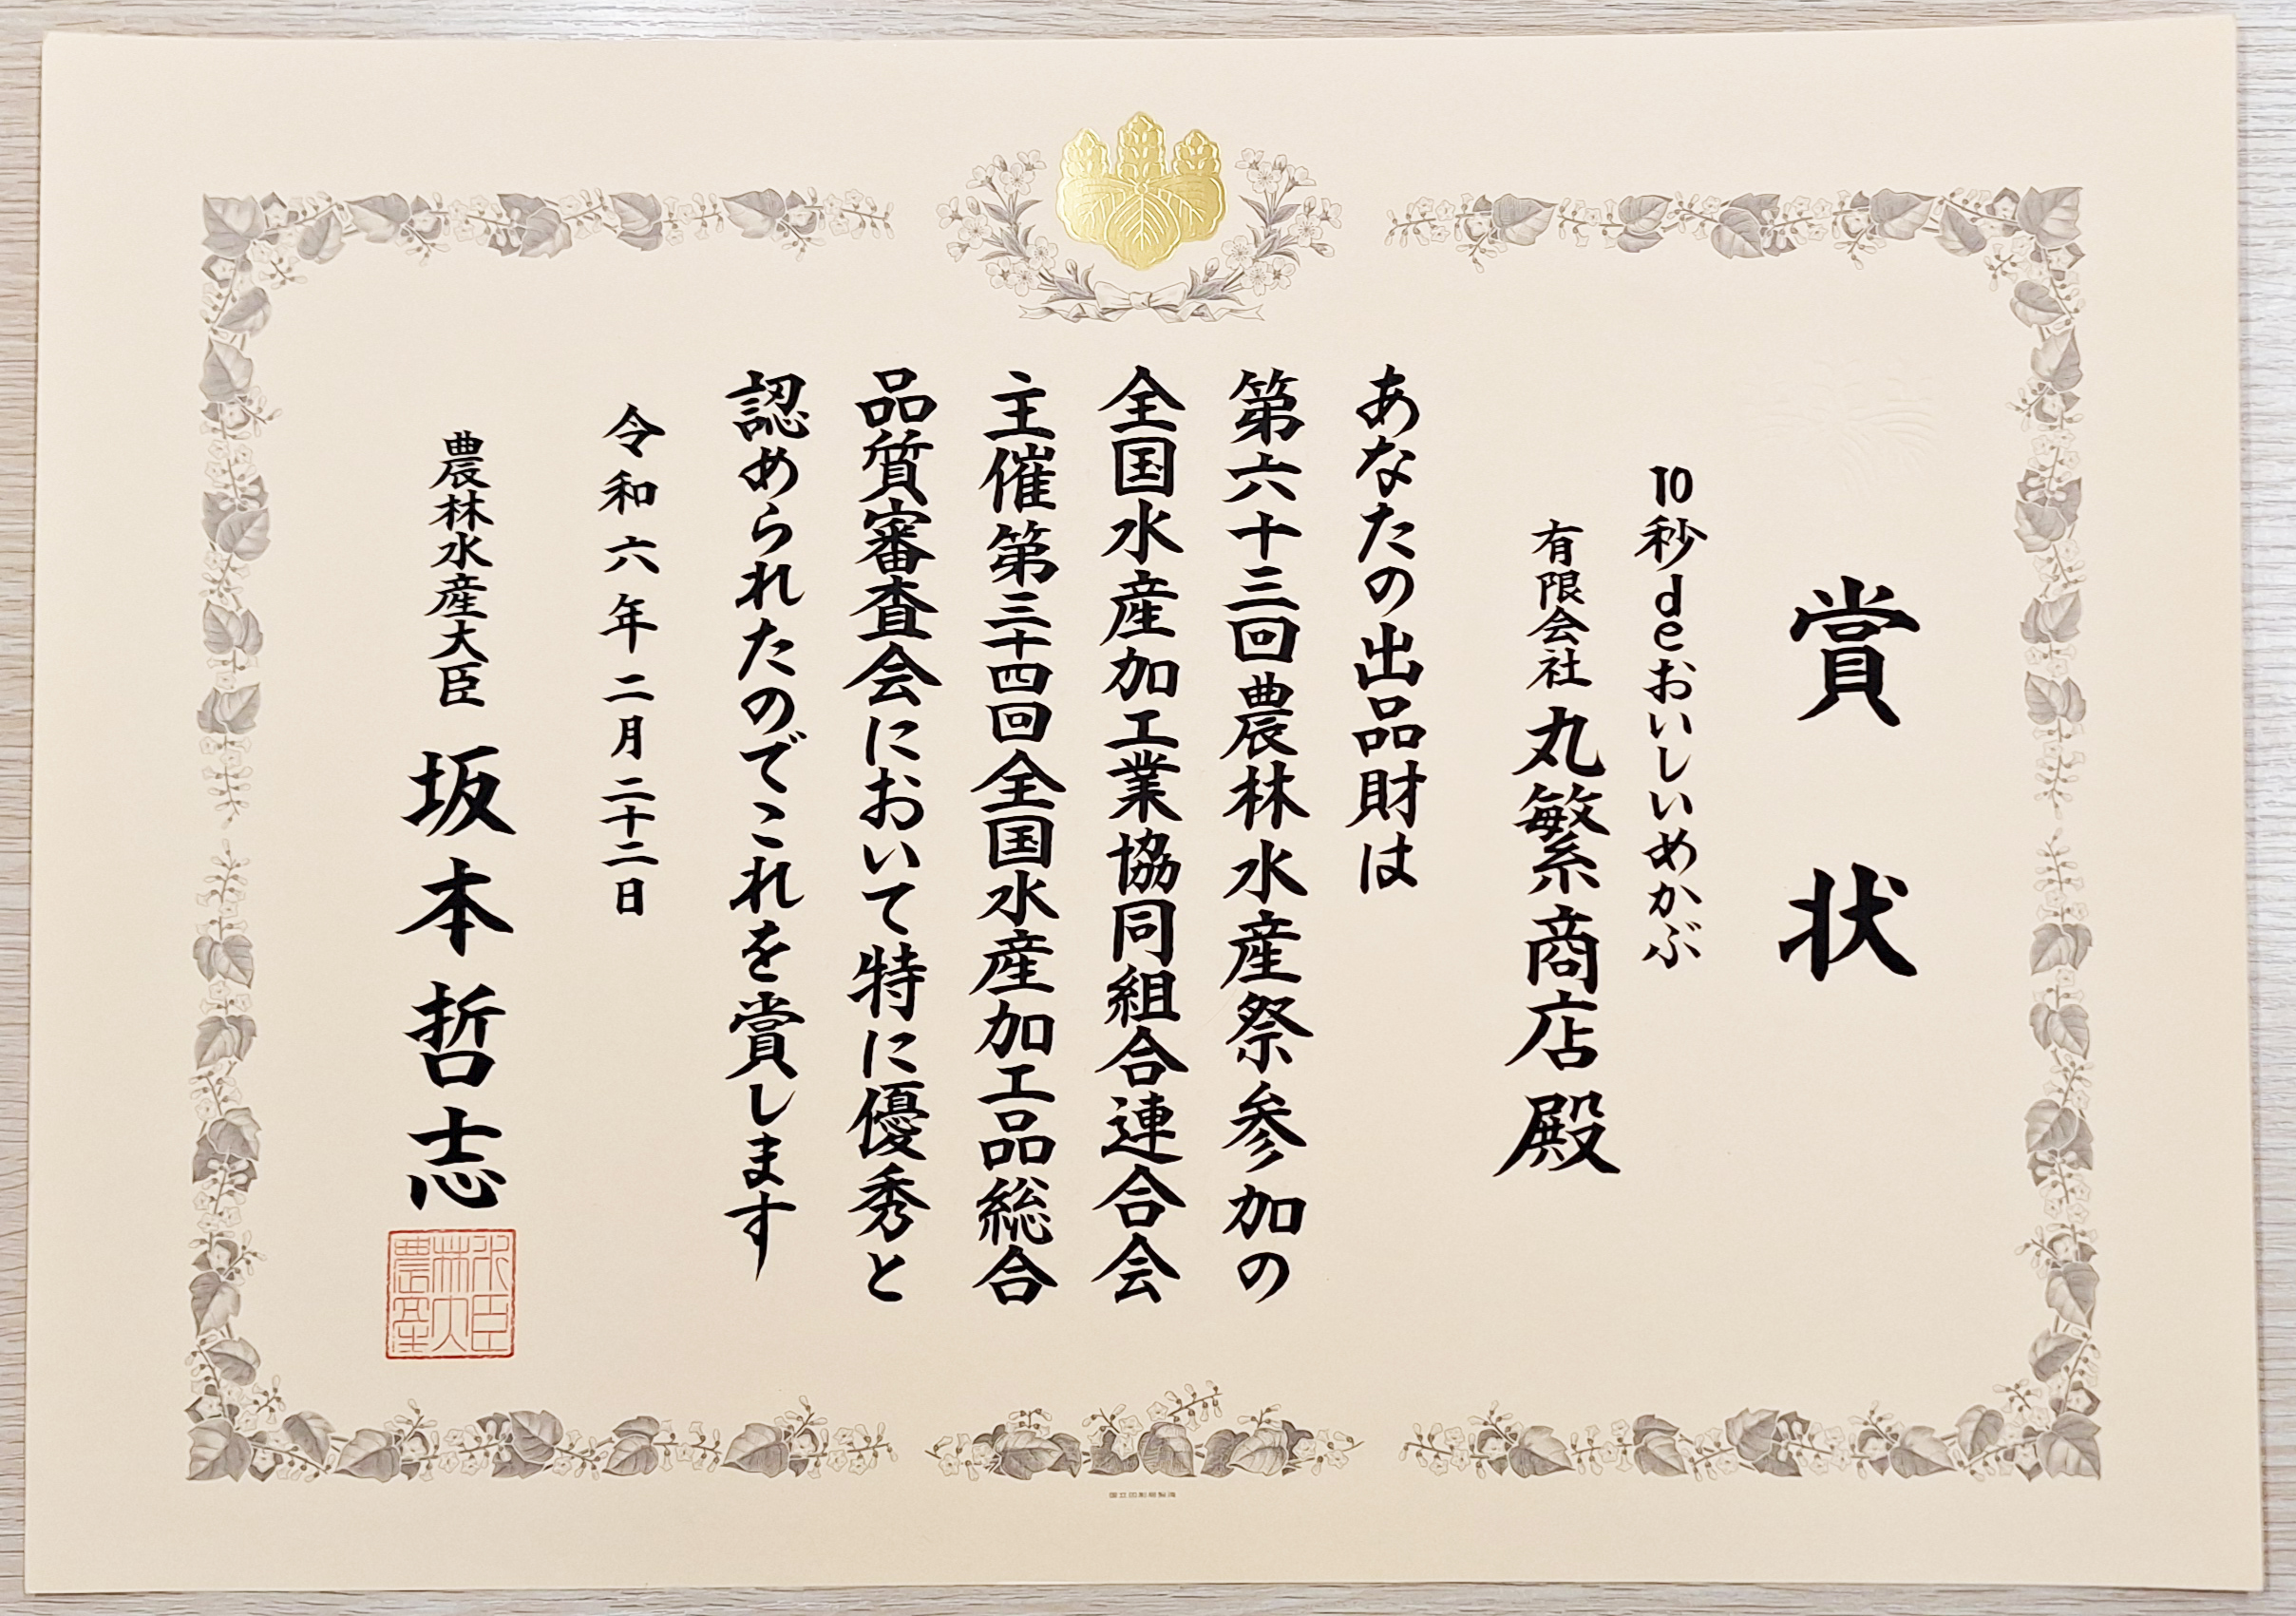 賞状
10秒deおいしいめかぶ
有限会社 丸繁商店殿
あなたの出品財は
第六十三回農林水産祭参加の
全国水産加工業協同組合連合会
主催第三十四回全国水産加工品総合
品質審査会において特に優秀と
認められたのでこれを賞します
令和六年二月二十二日
農林水産大臣 坂本哲志
農林水産大臣